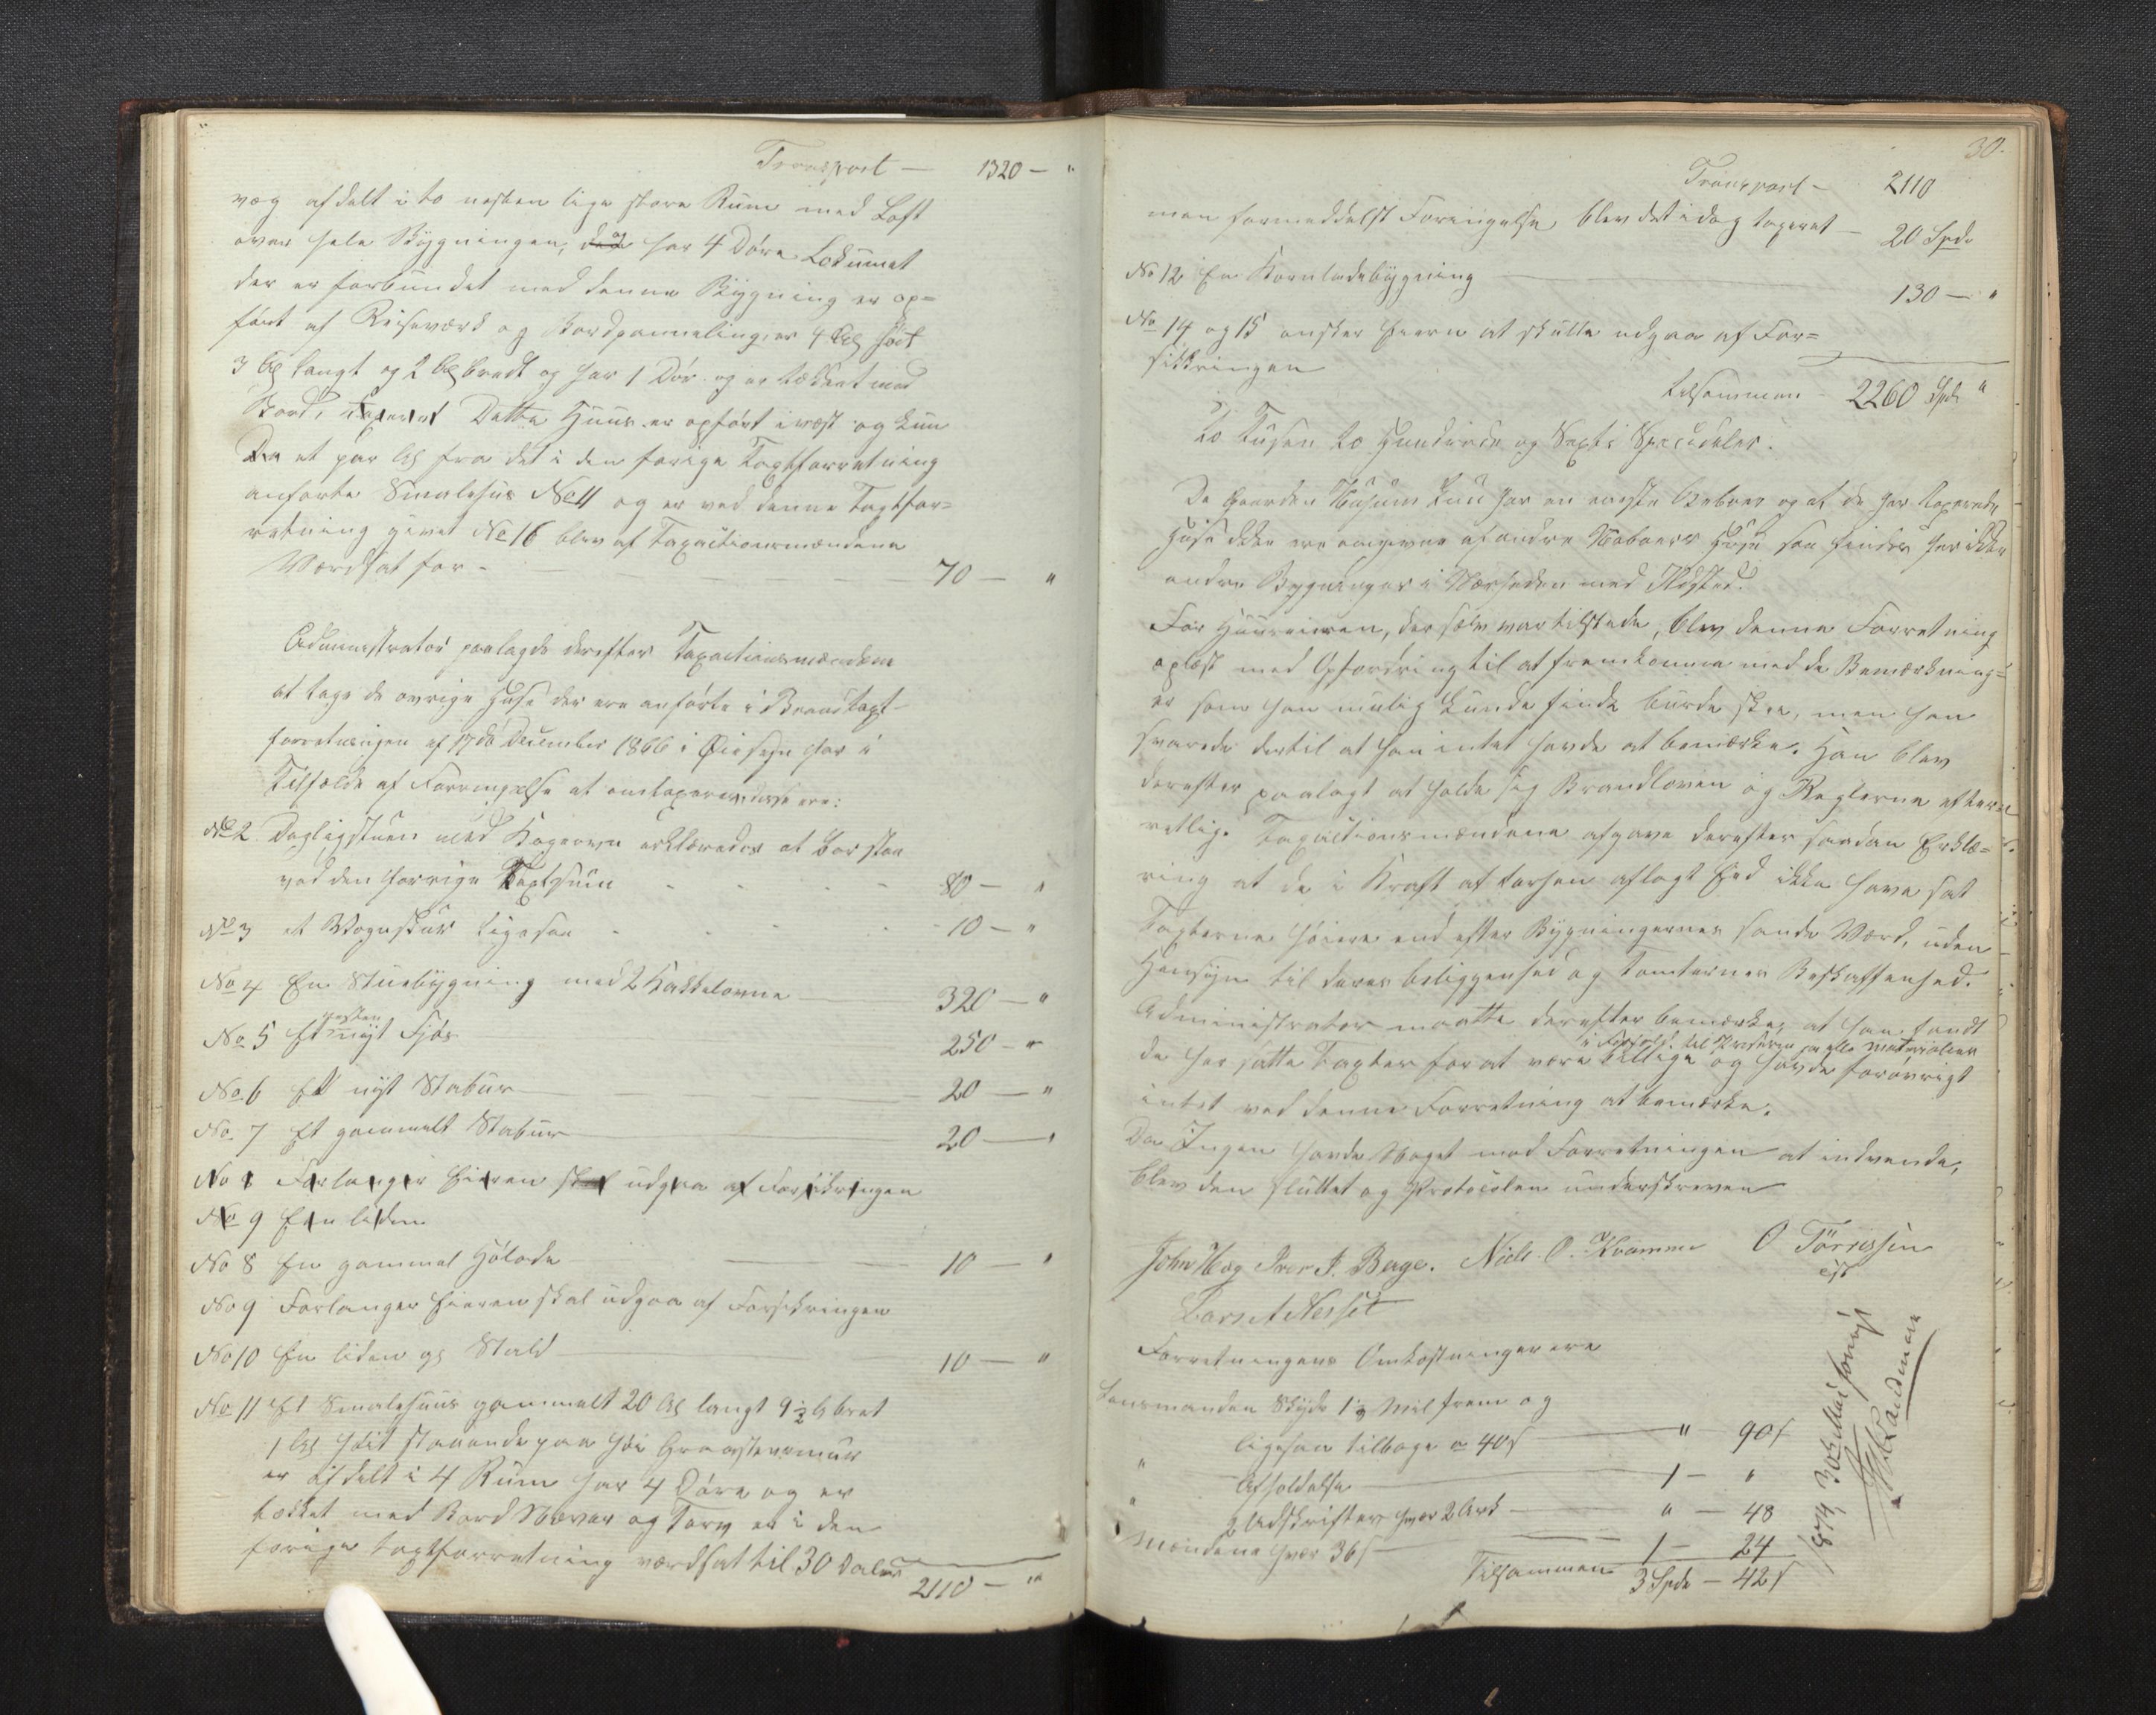 Transport — 1320 — "
væg afdelt i to nesten lige store Rum med Loft
over hele Bygningen, og har 4 Döre Lokummet
der er forbundet med denne Bygning er op=
fört af Reisværk og Bordpanneling, er 4 Al höit
3 Al langt og 2 Al bredt og har 1 Dör og er tækket med
Bord, Dette Huus er opført i väst og kun
et par Al fra det i den forige Taxtforretning
anførte Smalehus No 11 og er ved denne Taxtfor=
retning givet No 16 blev af Taxationsmændene
Værdsat for - 70 — "
Administrator paalagde derefter Taxationsmændene
at tage de øvrige Huse der ere anførte i Brandtaxt-
forretningen af 17de December 1866 i Øiesyn for i
Tilfælde af Forringelse at omtaxeres, disse ere:
No 2 Dagligstuen med Kogeovn erklæredes at bør staa
ved den forrige Taxtsum - - - - 80 — "
No 3 et Vognskur ligesaa - - - - 10 — "
No 4 En Stuebygning med 2 Kakkelovne — 320 — "
No 5 Et nesten nyt Fjös 250 — "
No 6 Et nyt Stabur — 20 — "
No 7 Et gammelt Stabur — 20 — "
No 8 Forlanger Eieren skal udgaa af Forsikringen
No 9 En liden
No 8 En gammel Hölade — 10 — "
No 9 Forlanger Eieren skal udgaa af Forsikringen
No 10 En liden gl Stald — 10 — "
No 11 Et Smalehuus gammelt 20 Al langt 9 1/2 Al bret
1 Al höit staaende paa höi Graastensmuur
er afdelt i 4 Rum har 4 Döre og er
tækket med Bord Næver og Torv er i den
forige Taxtforretning værdsat til 30 Daler
2110 — "
30.
Transport — 2110
men formeddelst Foringelse blev det idag taxeret — 20 Spd
No 12 En Kornladebygning — 130 — "
No 14 og 15 ønsker Eieren at skulle udgaa af For=
sikkringen
tilsammen — 2260 Spd "
to Tusen to Hundrede og Sexti Speciedaler.
Da Gaarden Husum kun har en eneste Beboer og at de her taxerede
Huse ikke ere omgivne af andre Naboers Huse saa findes her ikke
andre Bygninger i Nærheden med Ildsted.
For Huuseieren, der selv var tilstede, blev denne Forretning
oplæst med Opfordring til at fremkomme med de Bemærkning=
er som han mulig kunde finde burde skee, men han
svarede dertil at han intet havde at bemærke. Han blev
derefter paalagt at holde sig Brandloven og Reglerne efter=
rettlig. Taxationsmændene afgave derefter saadan Erklæ=
ring at de i Kraft af forhen aflagt Eed ikke have sat
Taxterne höiere end efter Bygningernes sande Værd, uden
Hensyn til deres beliggenhed og Tomternes Beskaffenhed.
Administrator maatte derefter bemærke, at han fandt
i Forhold til Priserne paa alle Materialier
de her satte Taxter for at være billige og havde forøvrigt
intet ved denne Forretning at bemærke.
Da Ingen havde Noget mod Forretningen at indvende,
blev den sluttet og Protocolen underskreven
John Næs Iver J. Berge. Niels O. Kvamme O Törrissen
Lars A Nesset
Forretningens Omkostninger ere
Lensmanden Skyds 1 1/8 Mil frem og
ligesaa tilbage a 40 s — " 90 s
" Afholdelse — 1 — "
" 2 Udskrifter hver 2 Ark — " — 48
Mændene hver 36 s — 1 — 24
Tilsammen 3 Spd — 42 s
1874, 30te Mai